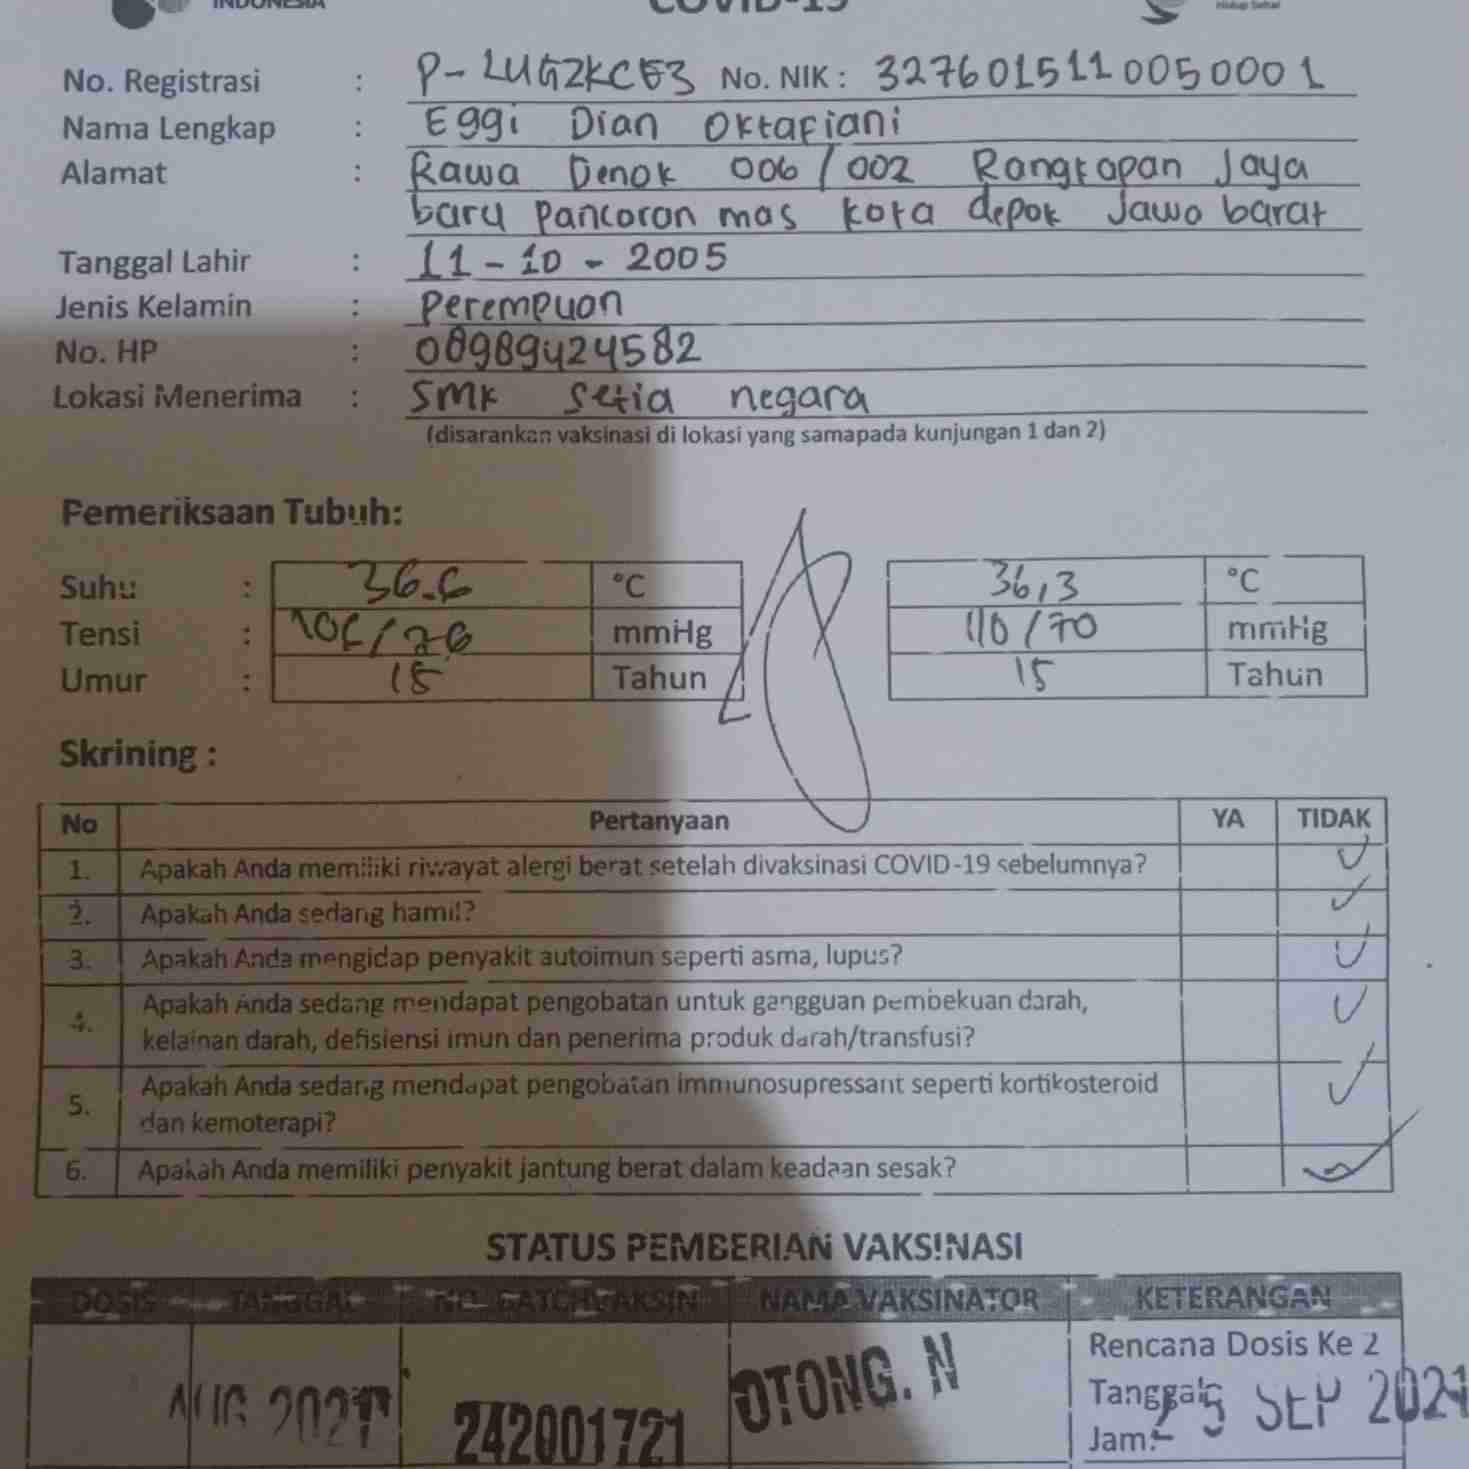 INDONESIA COVID-19 Hidup Sehat
No. Registrasi : P-LUGZKCE3 No. NIK : 3276015110050001
Nama Lengkap : Eggi Dian Oktafiani
Alamat : Rawa Denok 006/002 Rangkapan Jaya
baru pancoran mas kota depok Jawa barat
Tanggal Lahir : 11-10-2005
Jenis Kelamin : Perempuan
No. HP : 08989424582
Lokasi Menerima : SMK Setia negara
(disarankan vaksinasi di lokasi yang samapada kunjungan 1 dan 2)
Pemeriksaan Tubuh:
Suhu : 36.6 °C 36,3 °C
Tensi : mmHg 110/70 mmHg
Umur : 15 Tahun 15 Tahun
Skrining :
No Pertanyaan YA TIDAK
1. Apakah Anda memiliki riwayat alergi berat setelah divaksinasi COVID-19 sebelumnya?
2. Apakah Anda sedang hamil?
3. Apakah Anda mengidap penyakit autoimun seperti asma, lupus?
4. Apakah Anda sedang mendapat pengobatan untuk gangguan pembekuan darah,
kelainan darah, defisiensi imun dan penerima produk darah/transfusi?
5. Apakah Anda sedang mendapat pengobatan immunosupressant seperti kortikosteroid
dan kemoterapi?
6. Apakah Anda memiliki penyakit jantung berat dalam keadaan sesak?
STATUS PEMBERIAN VAKSINASI
DOSIS TANGGAL NO. BATCH VAKSIN NAMA VAKSINATOR KETERANGAN
Rencana Dosis Ke 2
AUG 2021 242001721 OTONG. N Tanggal: 5 SEP 2021
Jam: